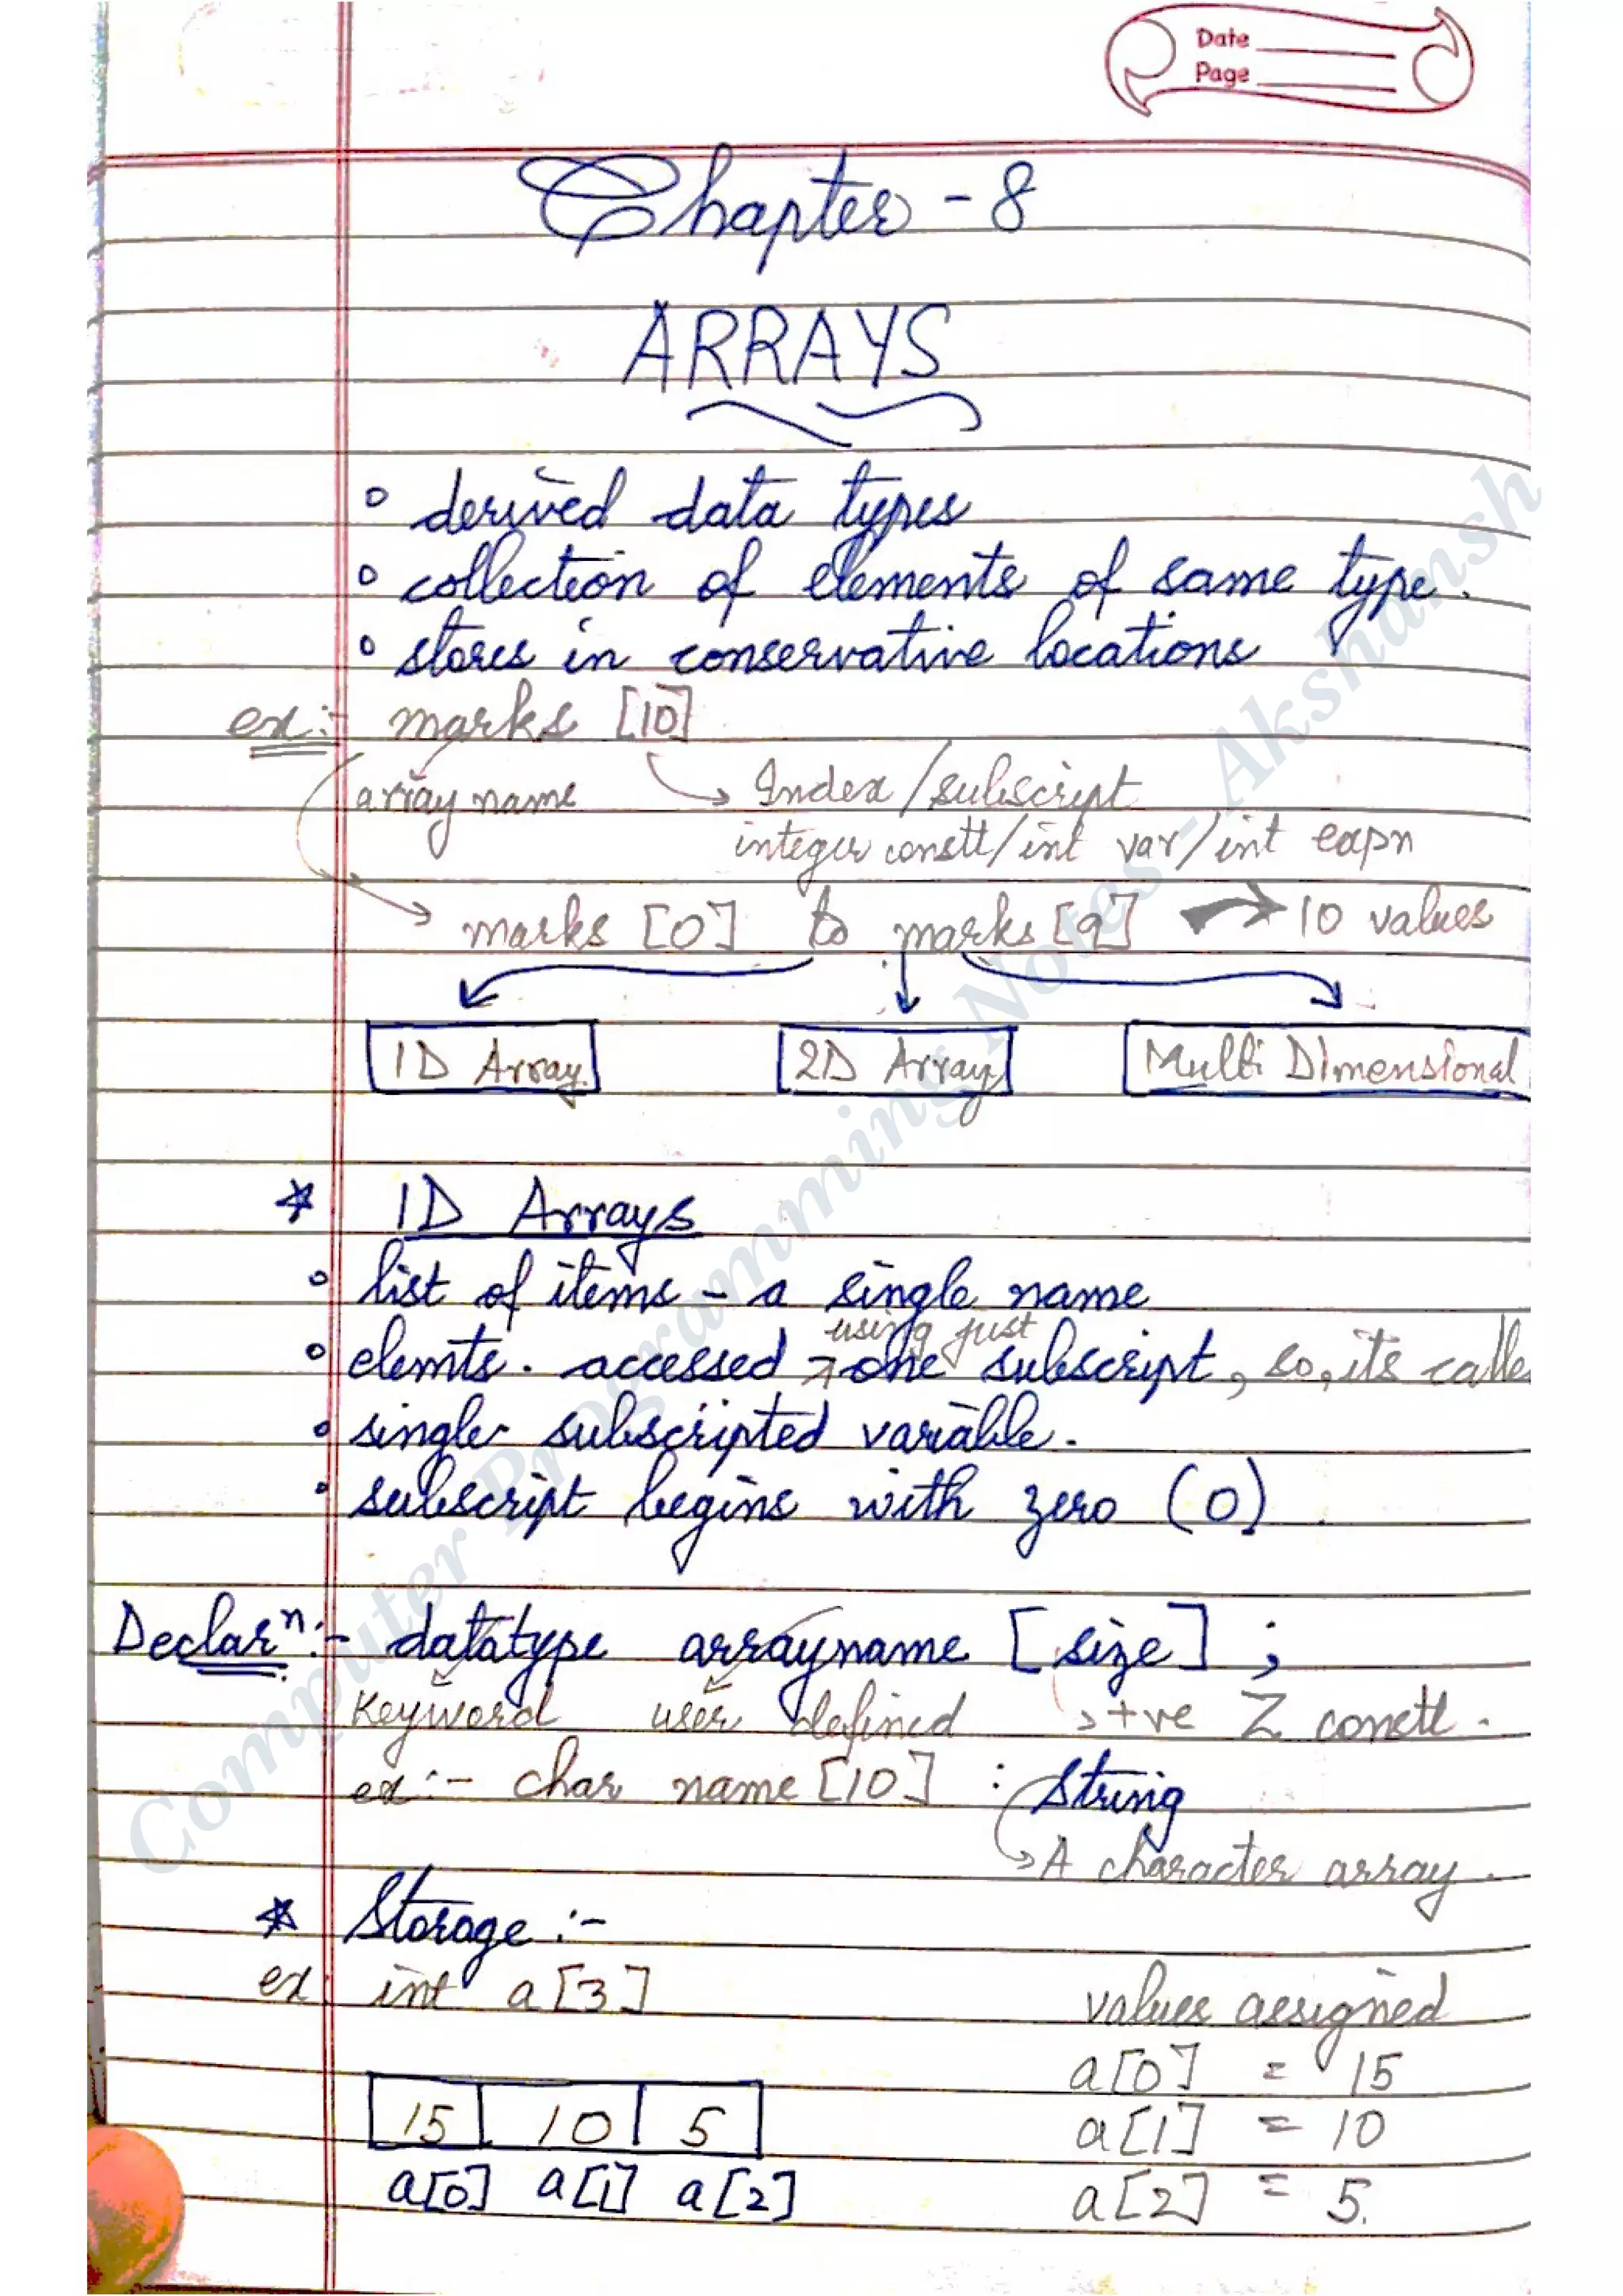 Date
Page
Chapter - 8
ARRAYS
° derived data types
° collection of elements of same type.
° stores in conservative locations
ex:- marks [10]
array name → Index/subscript
integer constt/int var/int expn
→ marks [0] to marks [9] → 10 values
1D Array 2D Array Multi Dimensional
* 1D Arrays
° list of items - a single name
using just
° elemts. accessed one subscript, so, its calle
° single subscripted variable.
° subscript begins with zero (0)
Declarⁿ:- datatype arrayname [size] ;
Keyword user defined → +ve Z constt.
ex:- char name [10] : String
→ A character array.
* Storage :-
ex: int a[3]
values assigned
a[0] = 15
15 10 5
a[1] = 10
a[0] a[1] a[2]
a[2] = 5.
Computer Programming Notes-Akshansh